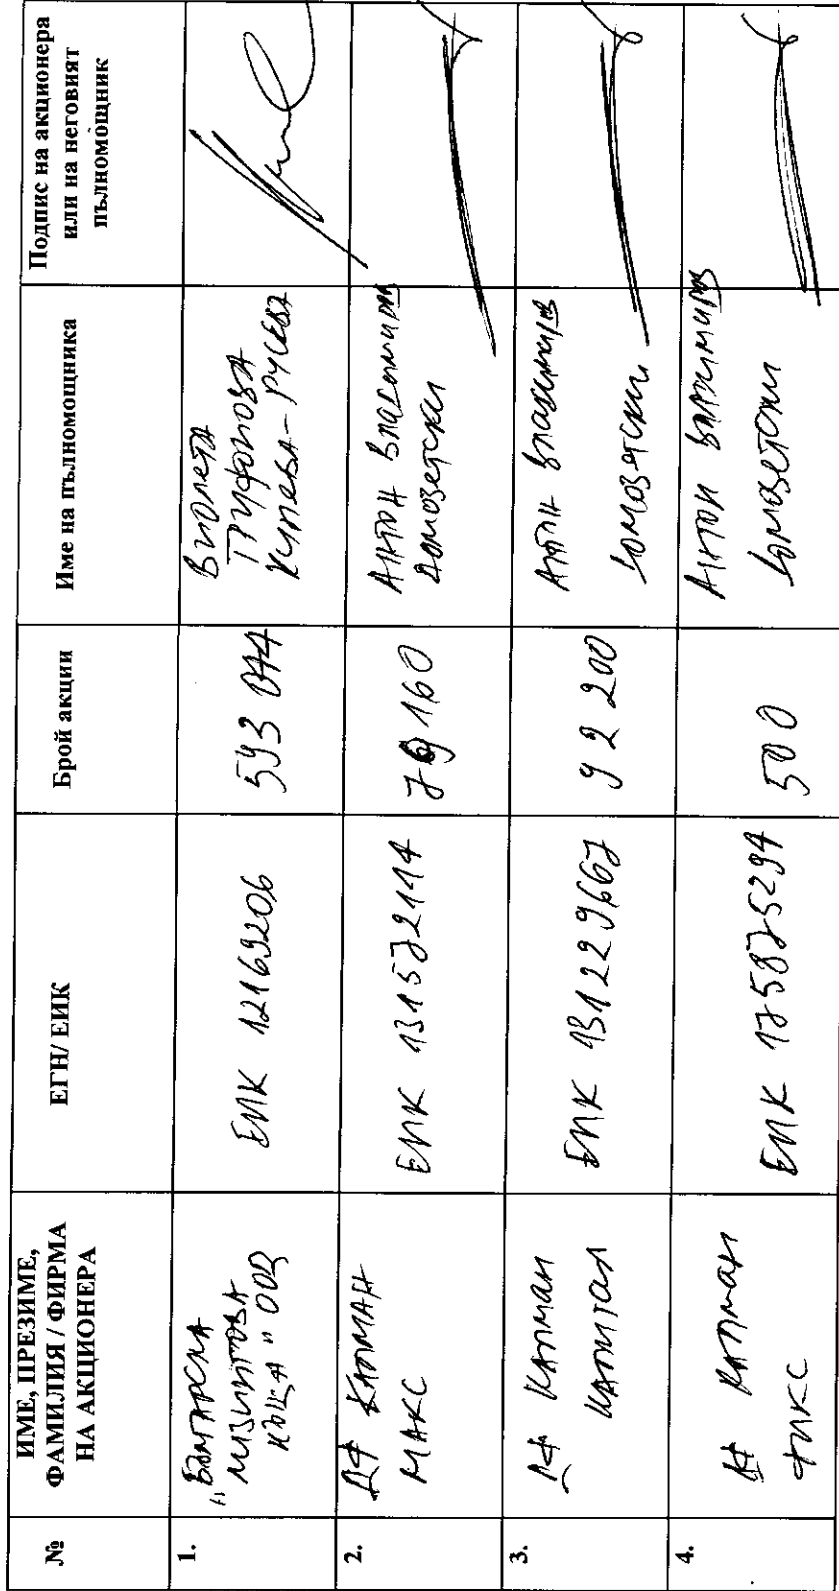 №
ИМЕ, ПРЕЗИМЕ,
ФАМИЛИЯ / ФИРМА
НА АКЦИОНЕРА
ЕГН/ ЕИК
Брой акции
Име на пълномощника
Подпис на акционера
или на неговият
пълномощник
1.
"Българска
къща" ООД
ЕИК 12169206
593
Виолета
Трифонова
Кунева-Русева
2.
ДФ КАПМАН
МАКС
ЕИК 131572144
160
АНТОН Владимиров
Домозетски
3.
ДФ Капман
Капитал
ЕИК 131229667
92 200
Антон Владимиров
Домозетски
4.
ДФ Капман
ФИКС
ЕИК 175875294
500
АНТОН Владимиров
Домозетски